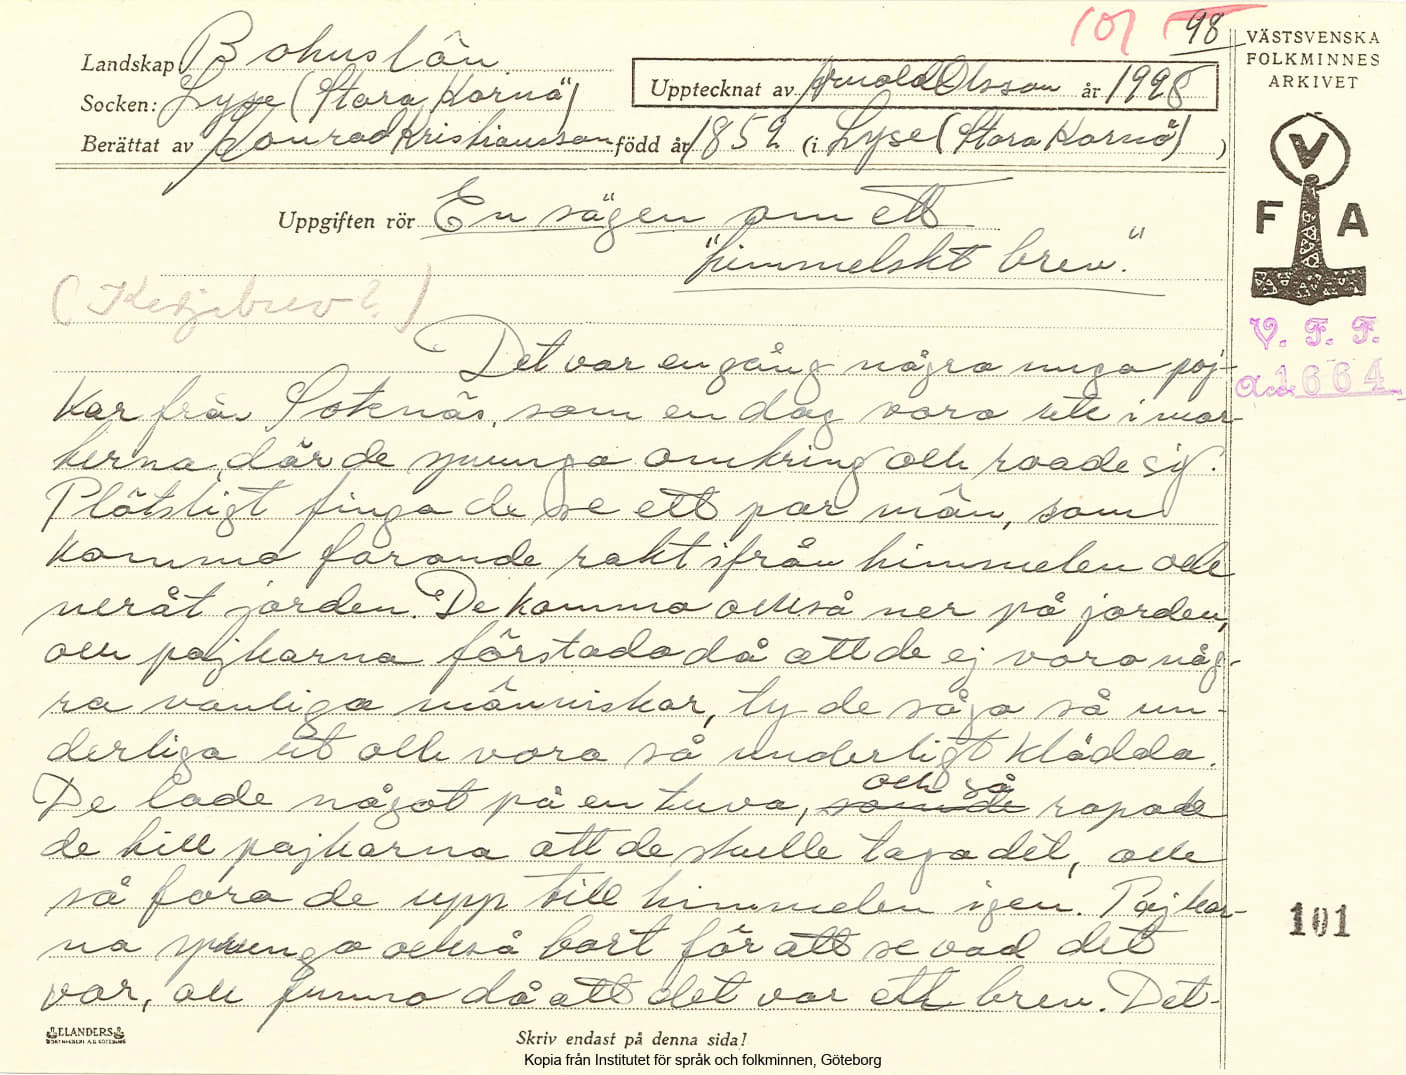 101 98
Landskap Bohuslän
Socken: Lyse (Stora Kornö)
Upptecknat av Arnold Olsson år 1928
Berättat av Konrad Kristiansson född år 1852 (i Lyse (Stora Kornö) )
VÄSTSVENSKA
FOLKMINNES
ARKIVET
V
F A
V. F. F.
Acc. 1664
Uppgiften rör En sägen om ett
"himmelskt brev."
(Kedjebrev?)
Det var en gång några unga poj-
kar från Sotenäs, som en dag voro ute i mar-
kerna, där de sprungo omkring och roade sig.
Plötsligt fingo de se ett par män, som
kommo farande rakt ifrån himmelen och
neråt jorden. De kommo också ner på jorden,
och pojkarna förstodo då att de ej voro någ-
ra vanliga människor, ty de sågo så un-
derliga ut och voro så underligt klädda.
De lade något på en tuva, och så ropade
de till pojkarna att de skulle taga det, och
så foro de upp till himmelen igen. Pojkar-
na sprungo också bort för att se vad det
var, och funno då att det var ett brev. Det-
101
ELANDERS
Skriv endast på denna sida!
Kopia från Institutet för språk och folkminnen, Göteborg